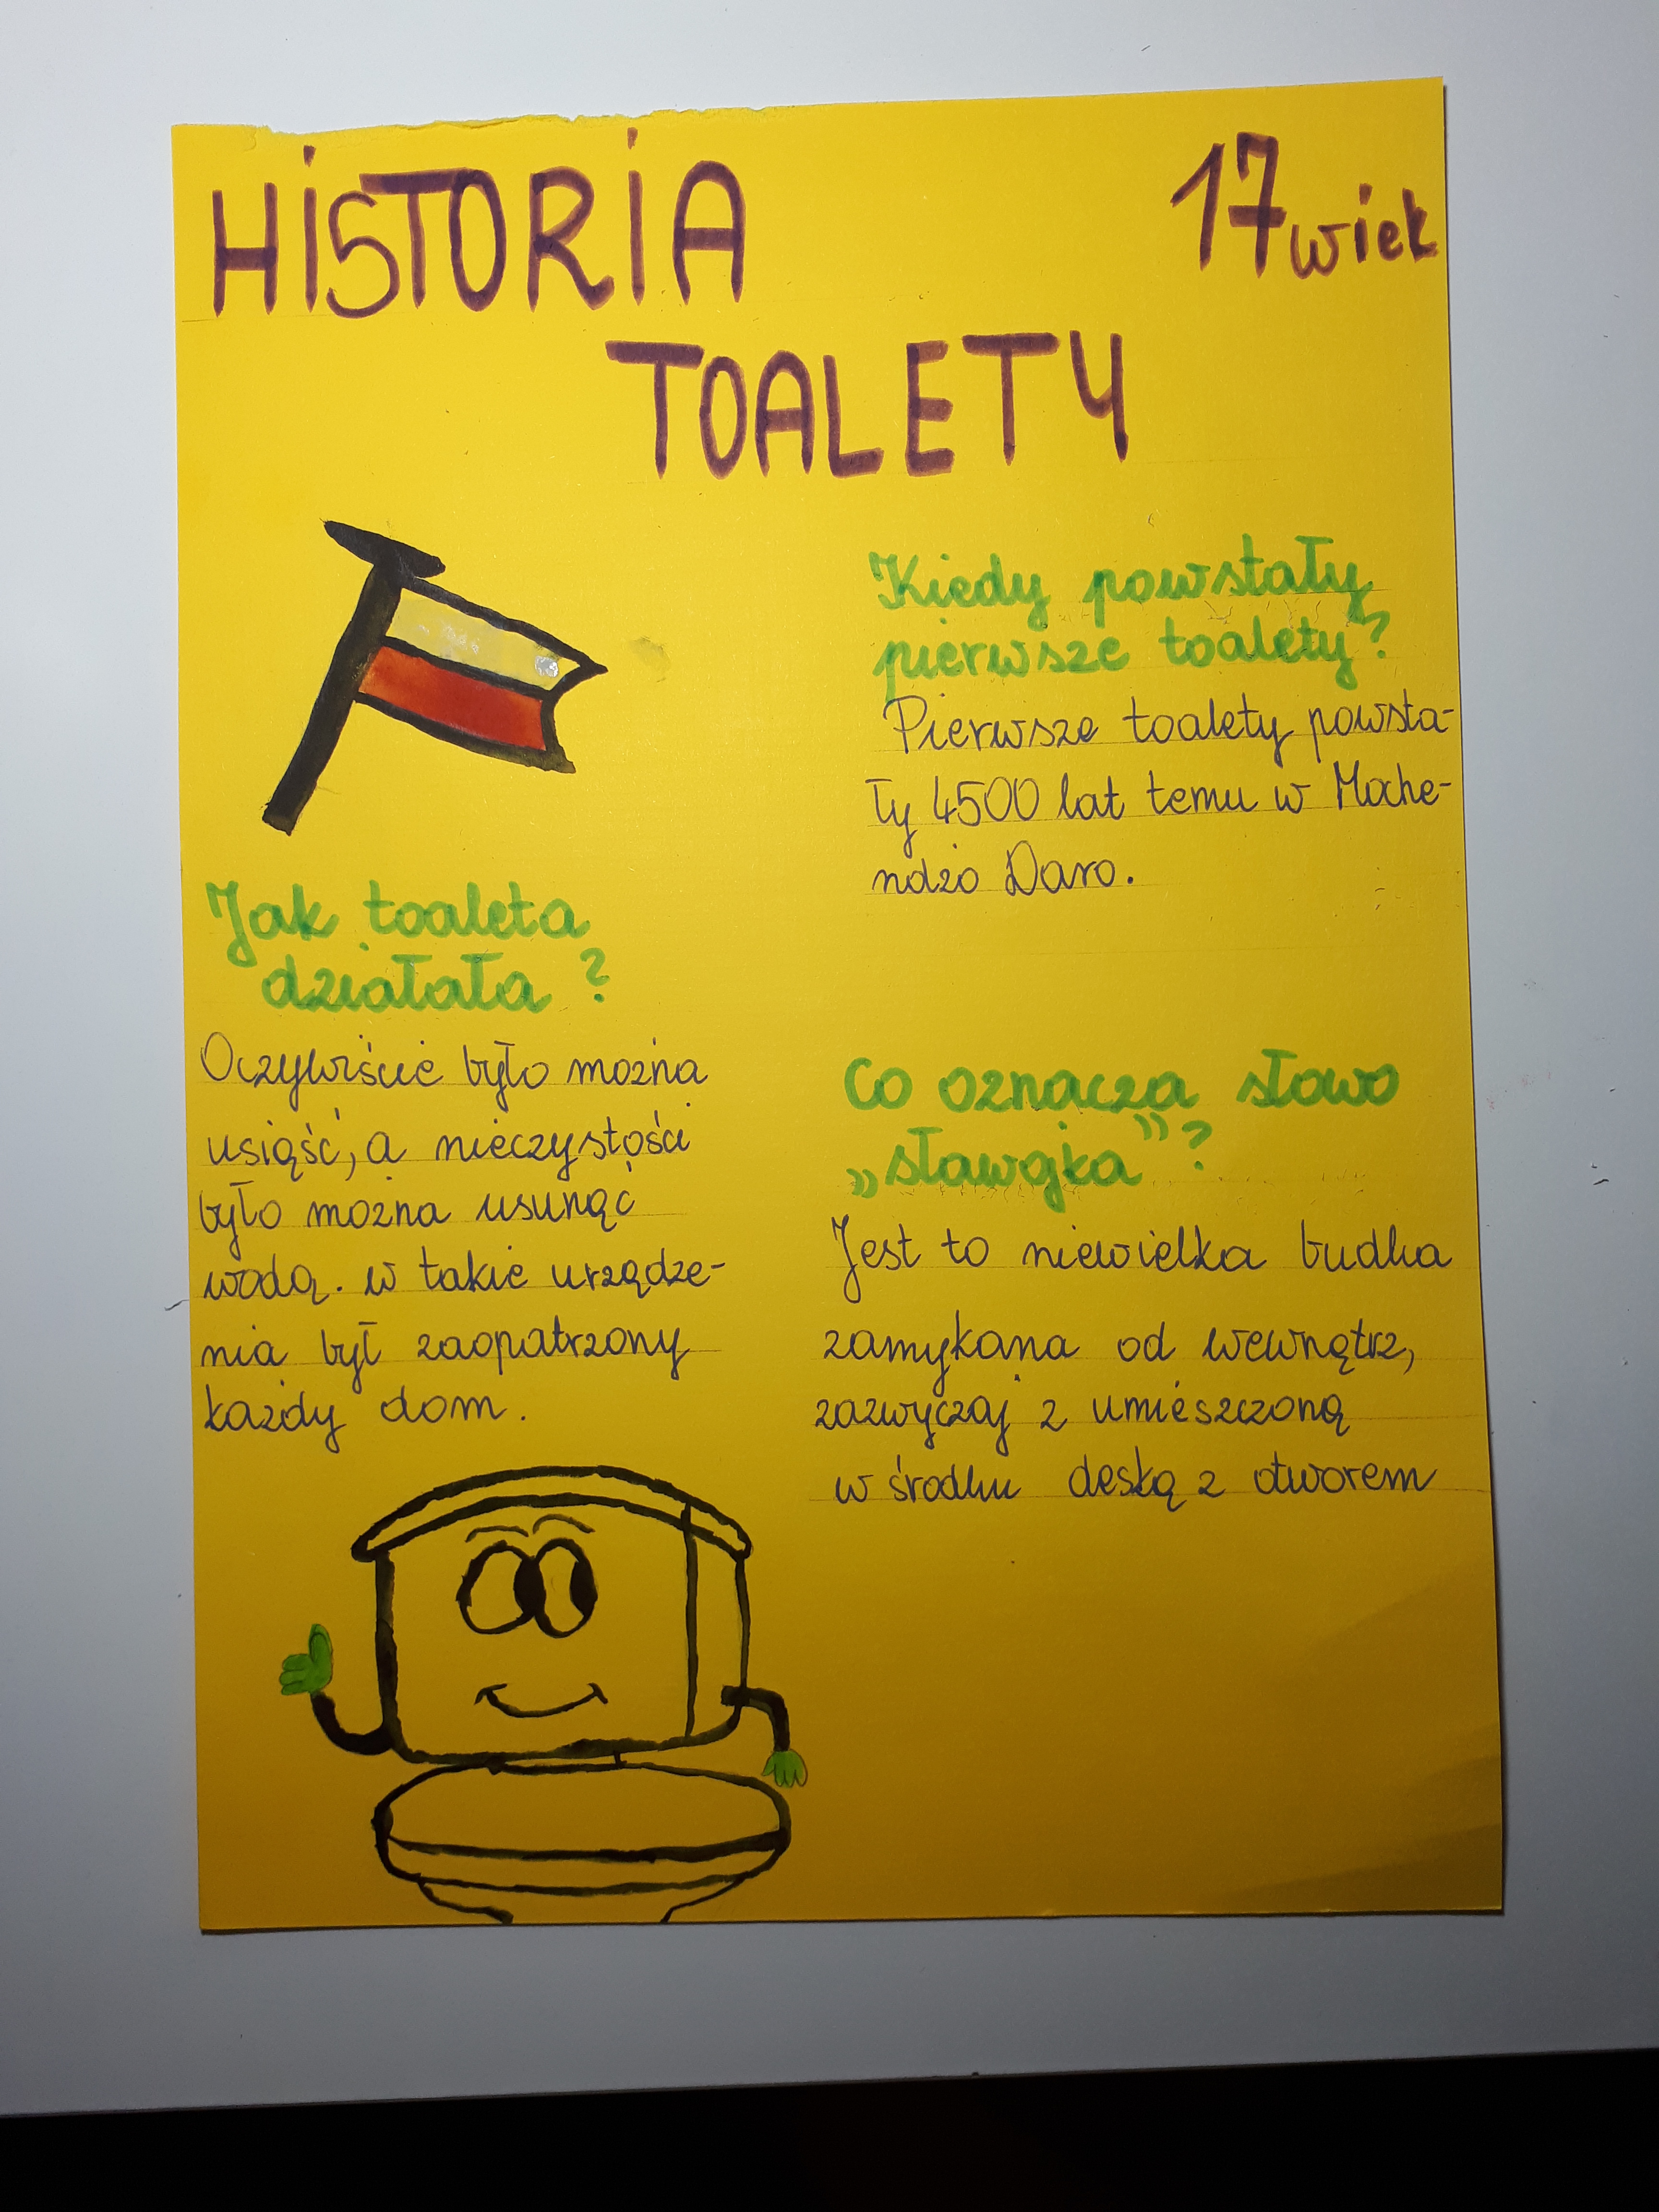 HiSTORiA
17 wiek
TOALETY
Kiedy powstały
pierwsze toalety?
Pierwsze toalety powsta-
ły 4500 lat temu w Moche-
ndżo Daro.
Jak toaleta
działała?
Oczywiście było można
usiąść, a nieczystości
było można usunąć
wodą. w takie urządze-
nia był zaopatrzony
każdy dom.
Co oznacza słowo
„sławojka"?
Jest to niewielka budka
zamykana od wewnątrz,
zazwyczaj z umieszczoną
w środku deską z otworem